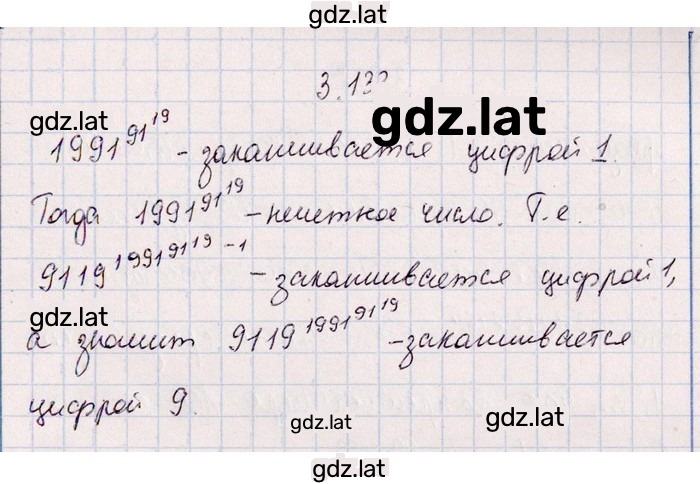 gdz.lat
3.13
gdz.lat
gdz.lat
1991^91^19 - заканчивается цифрой 1.
Тогда 1991^91^19 - нечетное число. Т.е.
9119^1991^91^19 - 1 - заканчивается цифрой 1,
gdz.lat
а значит 9119^1991^91^19 - заканчивается
цифрой 9.
gdz.lat
gdz.lat
gdz.lat